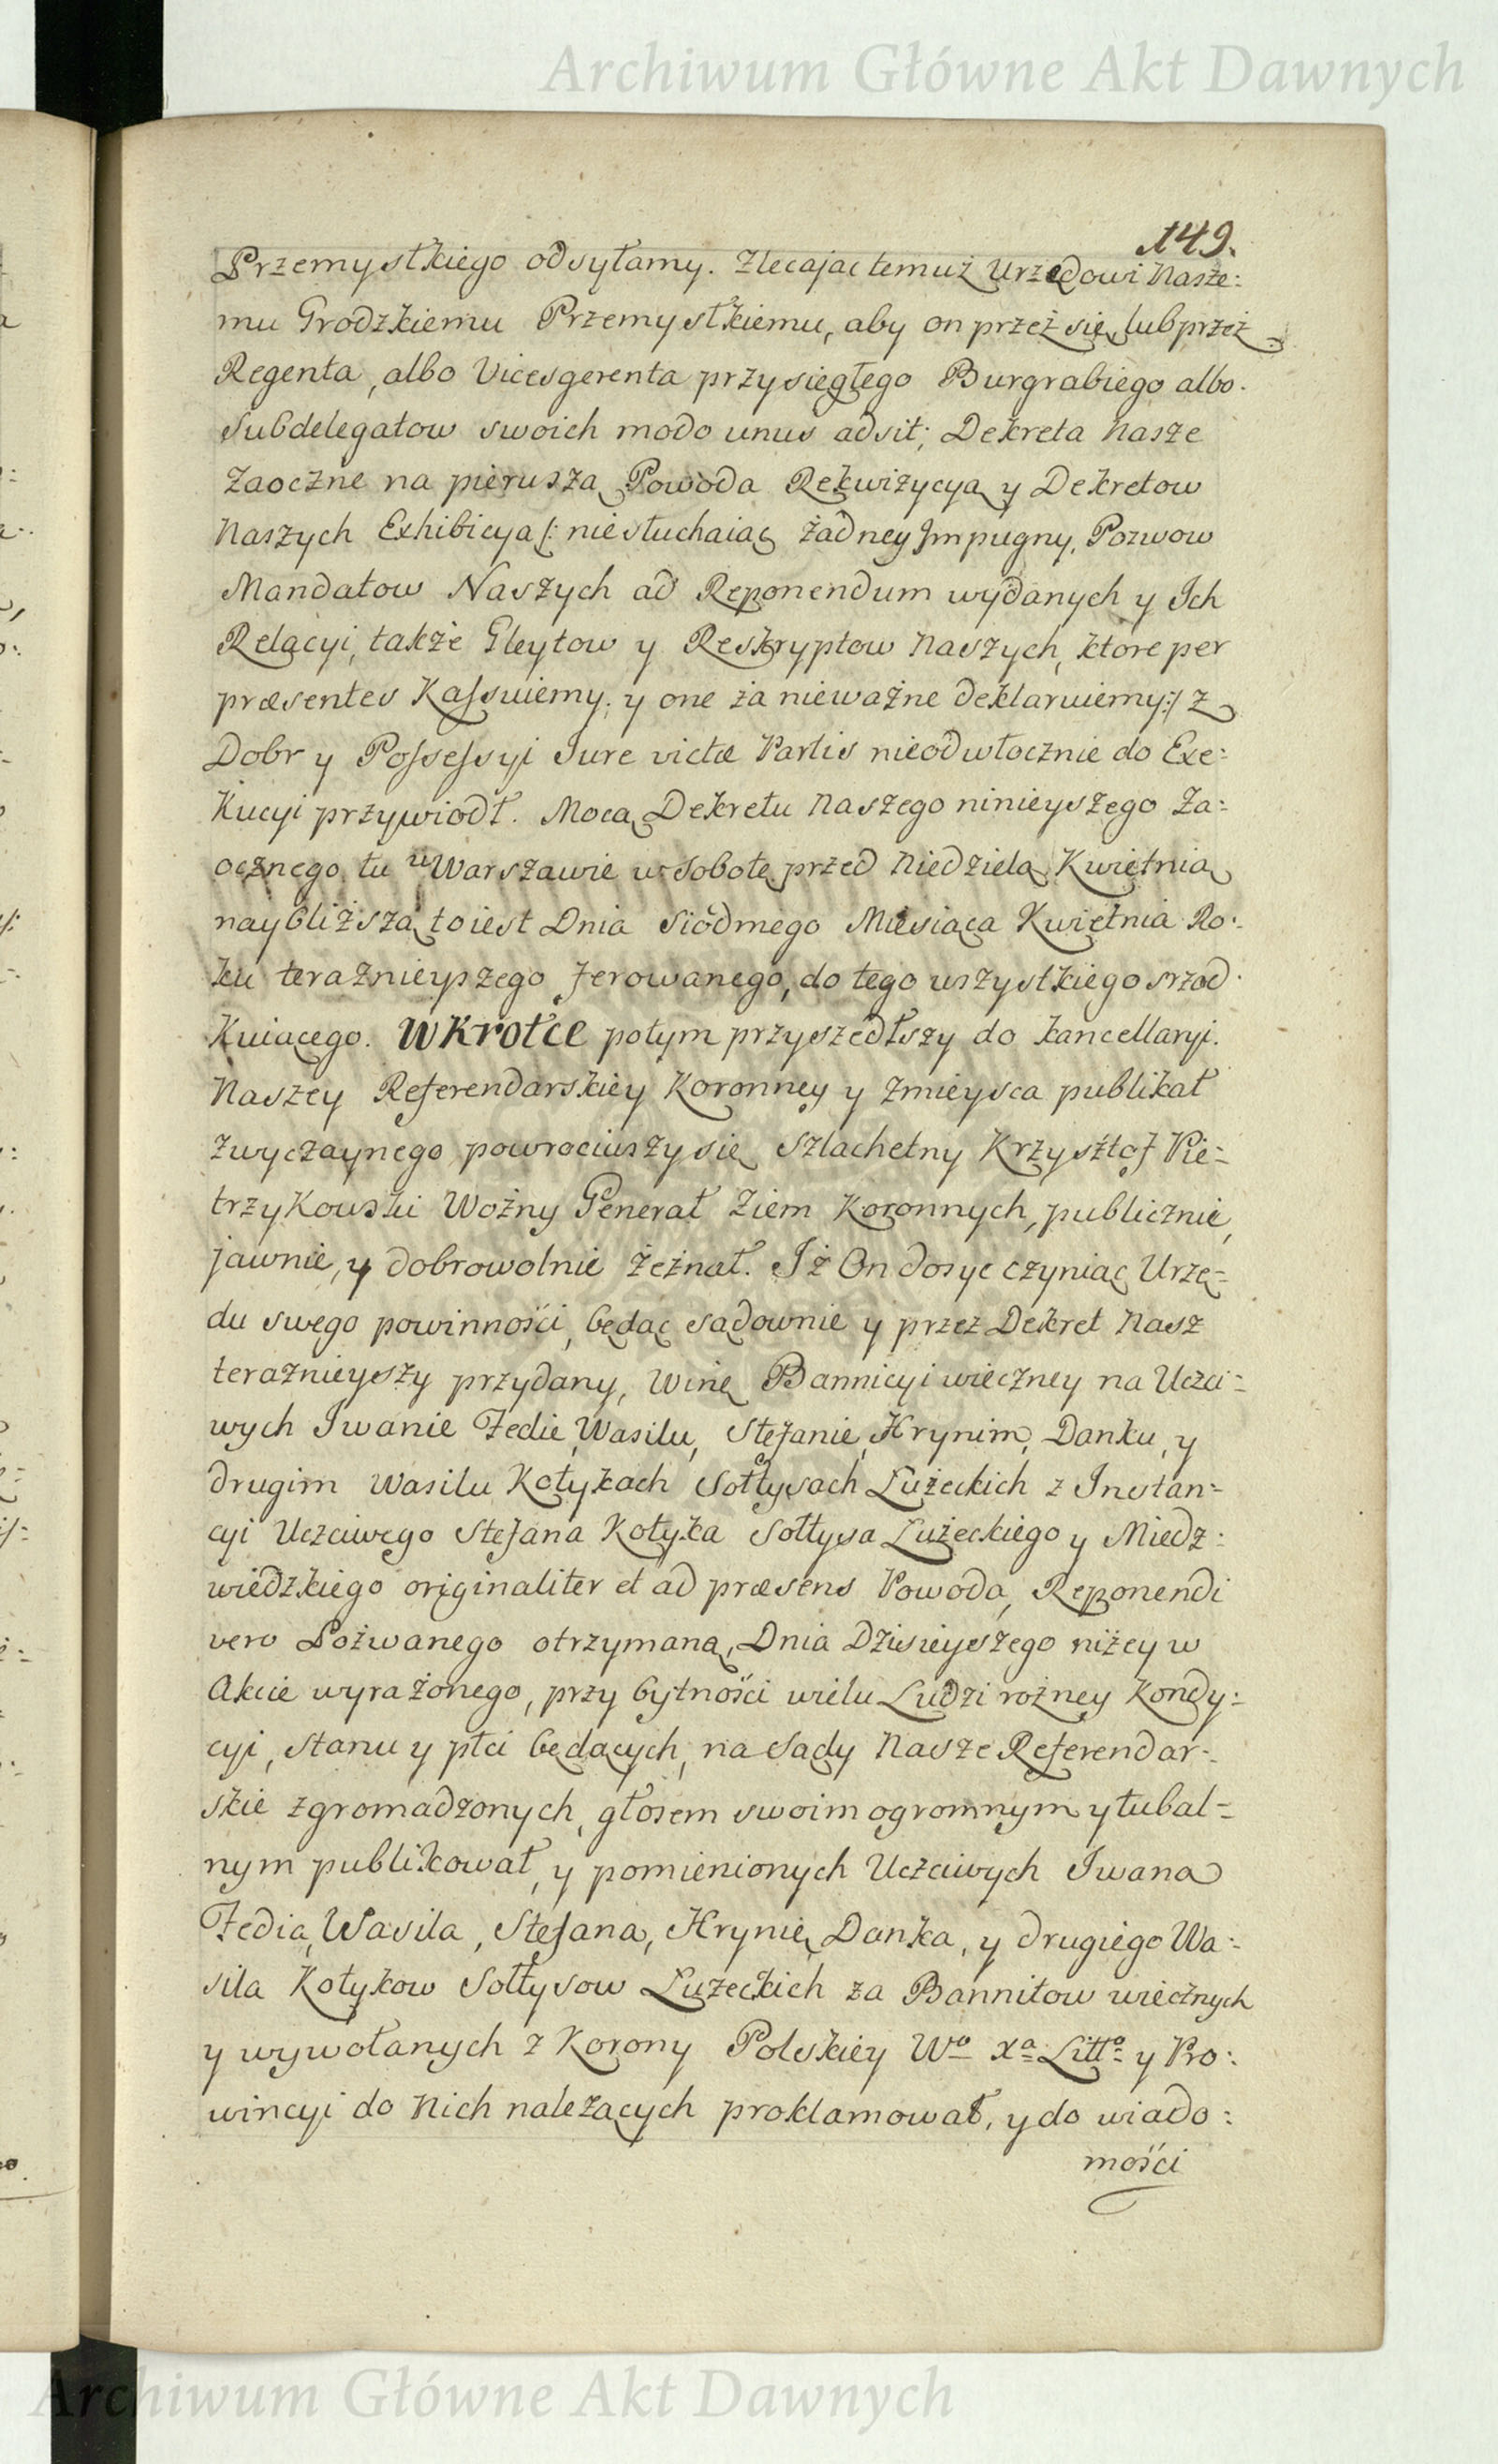 Archiwum Główne Akt Dawnych
149.
Przemyskiego odsyłamy. Zlecając temuż Urzędowi Nasze:
mu Grodzkiemu Przemyskiemu, aby on przeż się, lub przeż
Regenta, albo Vicesgerenta przysięgłego Burgrabiego albo
Subdelegatow swoich modo unus adsit; Dekreta Nasze
Zaoczne na pierwszą Powoda Rekwizycyą y Dekretow
Naszych Exhibicyą /: niesłuchaiąc żadney Jmpugny, Pozwow
Mandatow Naszych ad Reponendum wydanych y Ich
Relacyi, także Gleytow y Reskryptow Naszych, ktore per
præsentes Kassuiemy, y one za nieważne deklaruiemy :/ z
Dobr y Possessyi Jure victæ Partis nieodwłocznie do Exe:
kucyi przywiodł. Mocą Dekretu Naszego ninieyszego Za:
ocznego tu w Warszawie w Sobotę przed Niedzielą Kwietnią
naybliższą to iest Dnia Siódmego Miesiąca Kwietnia Ro:
ku teraźnieyszego ferowanego, do tego wszystkiego srzod
kuiącego. Wkrotce potym przyszedłszy do kancellaryi.
Naszey Referendarskiey Koronney y zmieysca publikat
zwyczaynego powrociwszy się Szlachetny Krzysztof Pie=
trzykowski Woźny Generał Ziem Koronnych, publicznie,
jawnie, y dobrowolnie zeznał. Iż On dosyc czyniąc Urzę=
du swego powinności, będąc sądownie y przez Dekret Nasz
teraźnieyszy przydany, winę Bannicyi wieczney na Uczci=
wych Iwanie Fediu, Wasilu, Stefanie, Hrynim, Danku, y
drugim Wasilu Kotykach Sołtysach Łużeckich z Instan=
cyi Uczciwego Stefana Kotyka Sołtysa Łużeckiego y Miedz:
wiedzkiego originaliter et ad præsens Powoda, Reponendi
vero Pozwanego otrzymaną, Dnia Dzisieyszego niżey w
Akcie wyrażonego, przy bytności wielu Ludzi rożney Kondy=
cyi, stanu y płci będących, na Sądy Nasze Referendar=
skie zgromadzonych, głosem swoim ogromnym y tubal=
nym publikował, y pomienionych Uczciwych Iwana
Fedia, Wasila, Stefana, Hrynię, Danka, y drugiego Wa=
sila Kotykow Sołtysow Łużeckich za Bannitow wiecznych
y wywołanych z Korony Polskiey Wo Xa Litto y Pro:
wincyi do Nich należących proklamował, y do wiado:
mości
Archiwum Główne Akt Dawnych